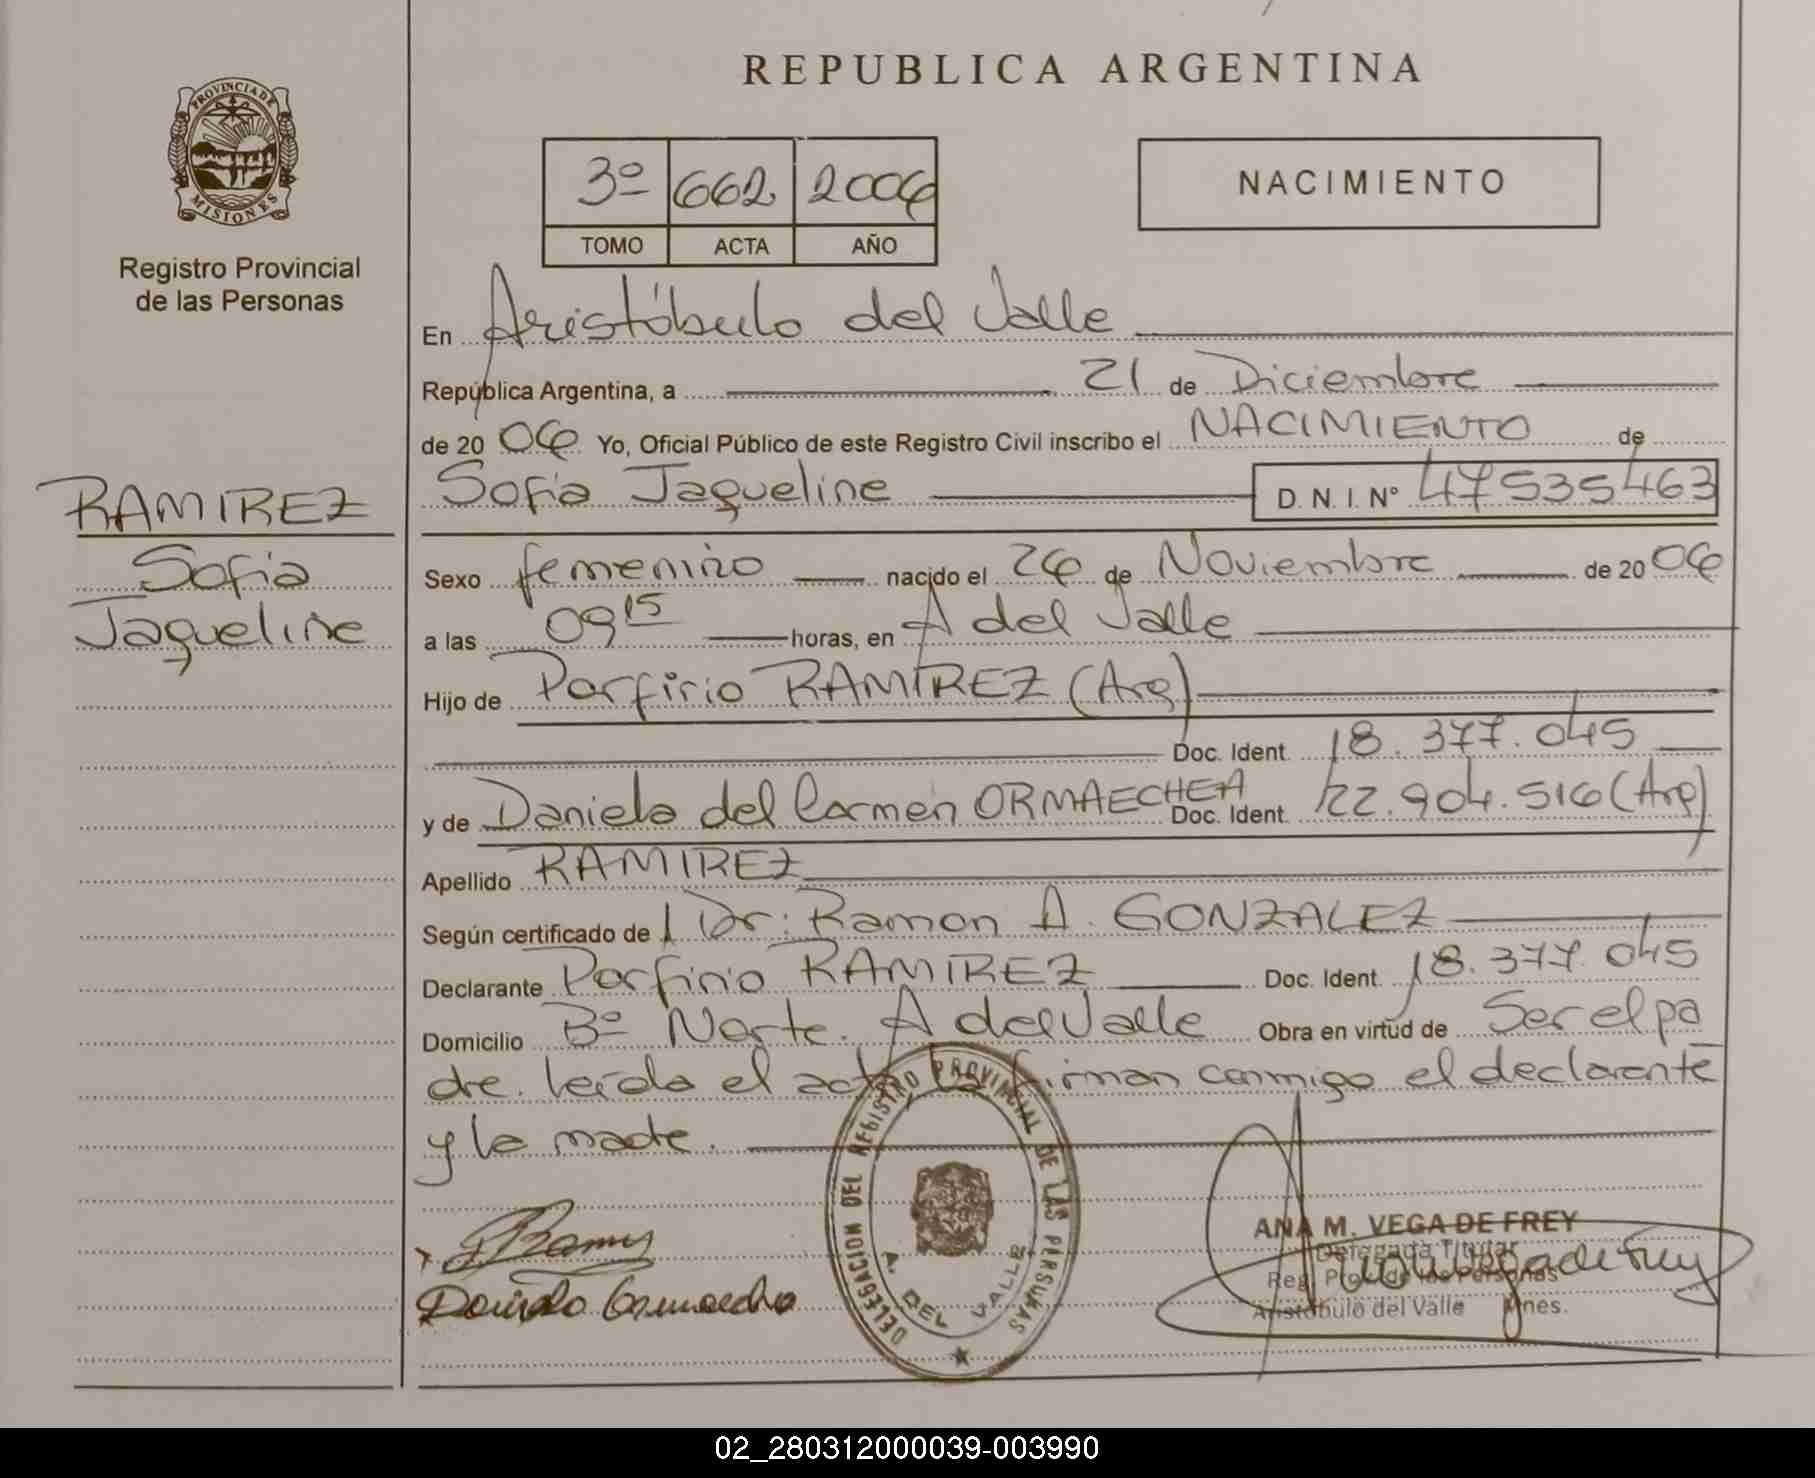 REPUBLICA ARGENTINA
PROVINCIA DE
MISIONES
Registro Provincial
de las Personas
3º 662 2006
TOMO ACTA AÑO
NACIMIENTO
En Aristóbulo del Valle
República Argentina, a 21 de Diciembre
de 20 06 Yo, Oficial Público de este Registro Civil inscribo el NACIMIENTO de
RAMIREZ
Sofia
Jaqueline
Sofia Jaqueline D. N. I. Nº 47535463
Sexo femenino nacido el 26 de Noviembre de 20 06
a las 09 15 horas, en A del Valle
Hijo de Porfirio RAMIREZ (Arg)
Doc. Ident. 18.377.045
y de Daniela del Carmen ORMAECHEA Doc. Ident. 22.904.516 (Arg)
Apellido RAMIREZ
Según certificado de l Dr: Ramon A. GONZALEZ
Declarante Porfirio RAMIREZ Doc. Ident. 18.377.045
Domicilio Bº Norte. A del Valle Obra en virtud de Ser el pa
dre. leída el acta la firman conmigo el declarante
y la madre.
DELEGACION DEL REGISTRO PROVINCIAL DE LAS PERSONAS
A. DEL VALLE
ANA M. VEGA DE FREY
Delegada Titular
Reg. Prov. de las Personas
Aristóbulo del Valle Mnes.
02_280312000039-003990